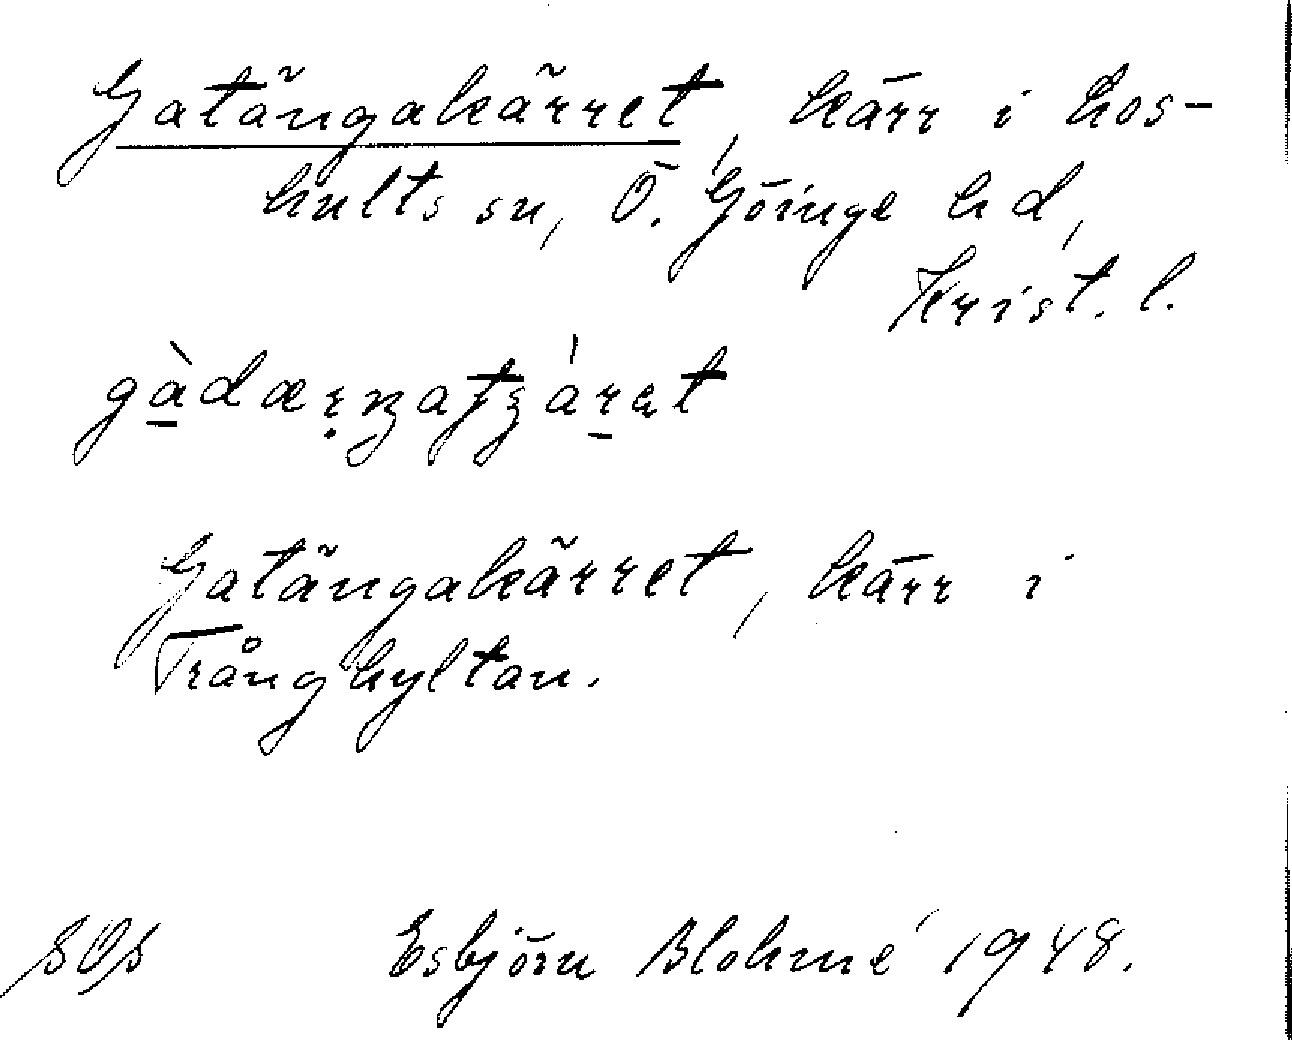 Gatängakärret, kärr i Hos-
hults sn, Ö. Göinge hd,
Krist. l.
Gatängakärret, kärr i
Trånghyltan.
Esbjörn Blohmé 1948.